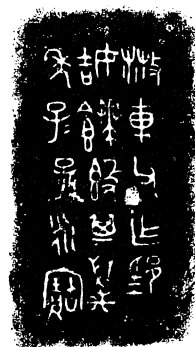 散車父乍
姞簋其萬
年孫子永寶